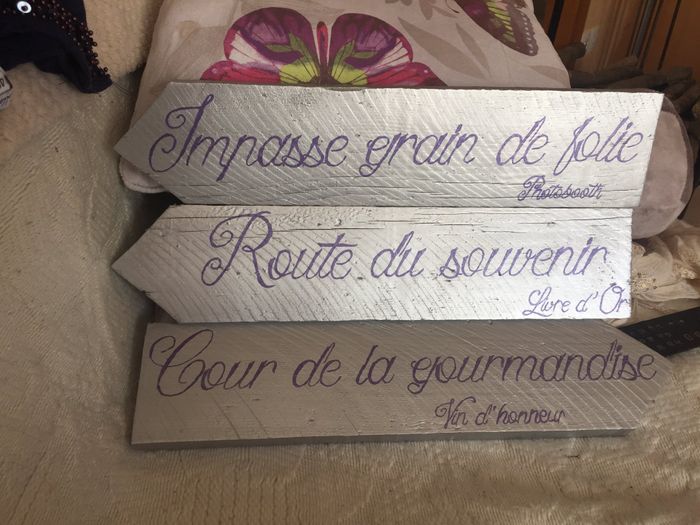 Impasse grain de folie
Photobooth
Route du souvenir
Livre d'Or
Cour de la gourmandise
Vin d'honneur